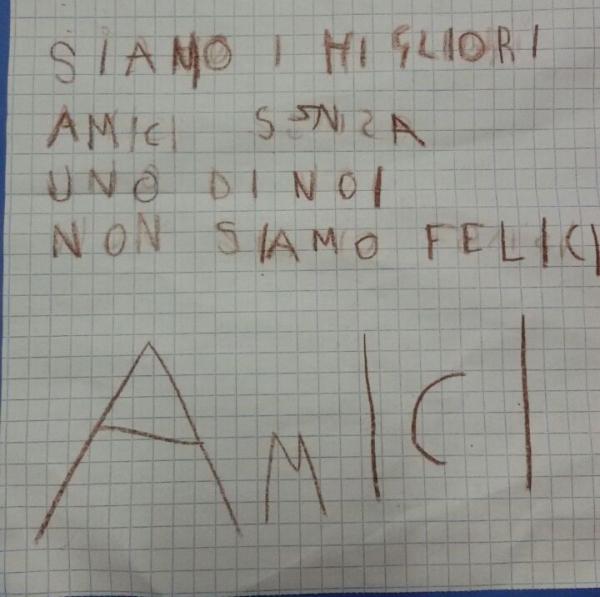 SIAMO I MIGLIORI
AMICI SENZA
UNO DI NOI
NON SIAMO FELICI
AMICI